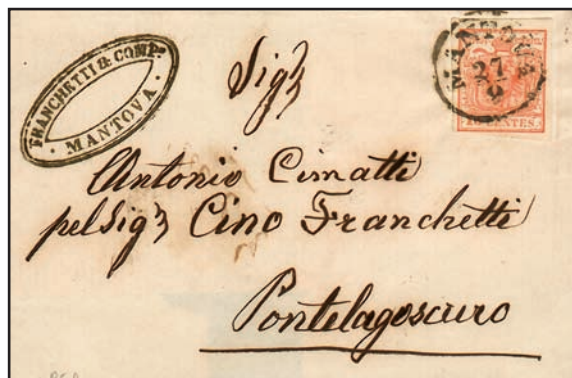 FRANCHETTI & COMP.
MANTOVA
MANTOVA
27
CENTES
Sigr
Antonio Cimatti
pel Sigr Cino Franchetti
Pontelagoscuro